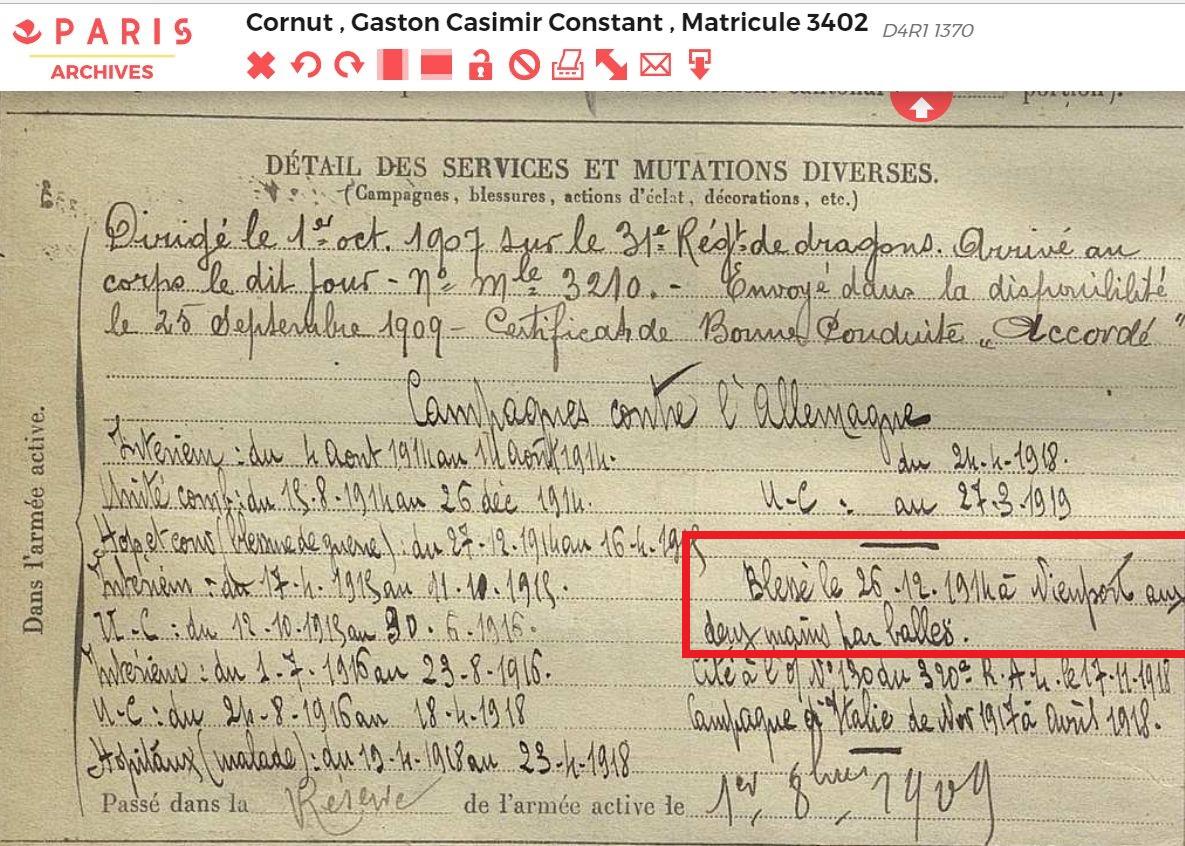 PARIS
ARCHIVES
Cornut , Gaston Casimir Constant , Matricule 3402 D4R1 1370
portion).
DÉTAIL DES SERVICES ET MUTATIONS DIVERSES.
(Campagnes, blessures, actions d'éclat, décorations, etc.)
Dirigé le 1er oct. 1907 sur le 31e Régt de dragons. Arrivé au
corps le dit jour - N° mle 3210. - Envoyé dans la disponibilité
le 25 Septembre 1909 - Certificat de Bonne Conduite „Accordé"
Dans l'armée active.
Campagnes contre l'Allemagne
Intérieur : du 4 Aout 1914 au 14 Août 1914.
Unité comb : du 15-8-1914 au 26 déc 1914.
Hop et conv (blessure de guerre) : du 27-12-1914 au 16-4-1915
Intérieur : du 17-4-1915 au 11-10-1915.
U-C : du 12-10-1915 au 30-6-1916.
Intérieur : du 1-7-1916 au 23-8-1916.
U-C : du 24-8-1916 au 18-4-1918
Hopitaux (malade) : du 19-4-1918 au 23-4-1918
du 24-4-1918.
U-C : au 27-3-1919
Blessé le 26-12-1914 à Nieuport aux
deux mains par balles.
Cité à l'O N° 130 du 320e R.A.L. le 17-11-1918
Campagne d'Italie de Nov 1917 à avril 1918.
Passé dans la Réserve de l'armée active le 1er 8bre 1909